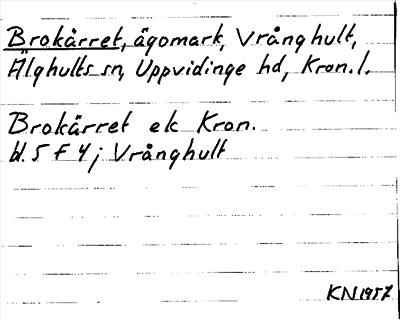 Brokärret, ägomark, Vrånghult,
Älghults sn, Uppvidinge hd, Kron. l.
Brokärret ek Kron.
bl. 5 F 4 j Vrånghult
KN 1957